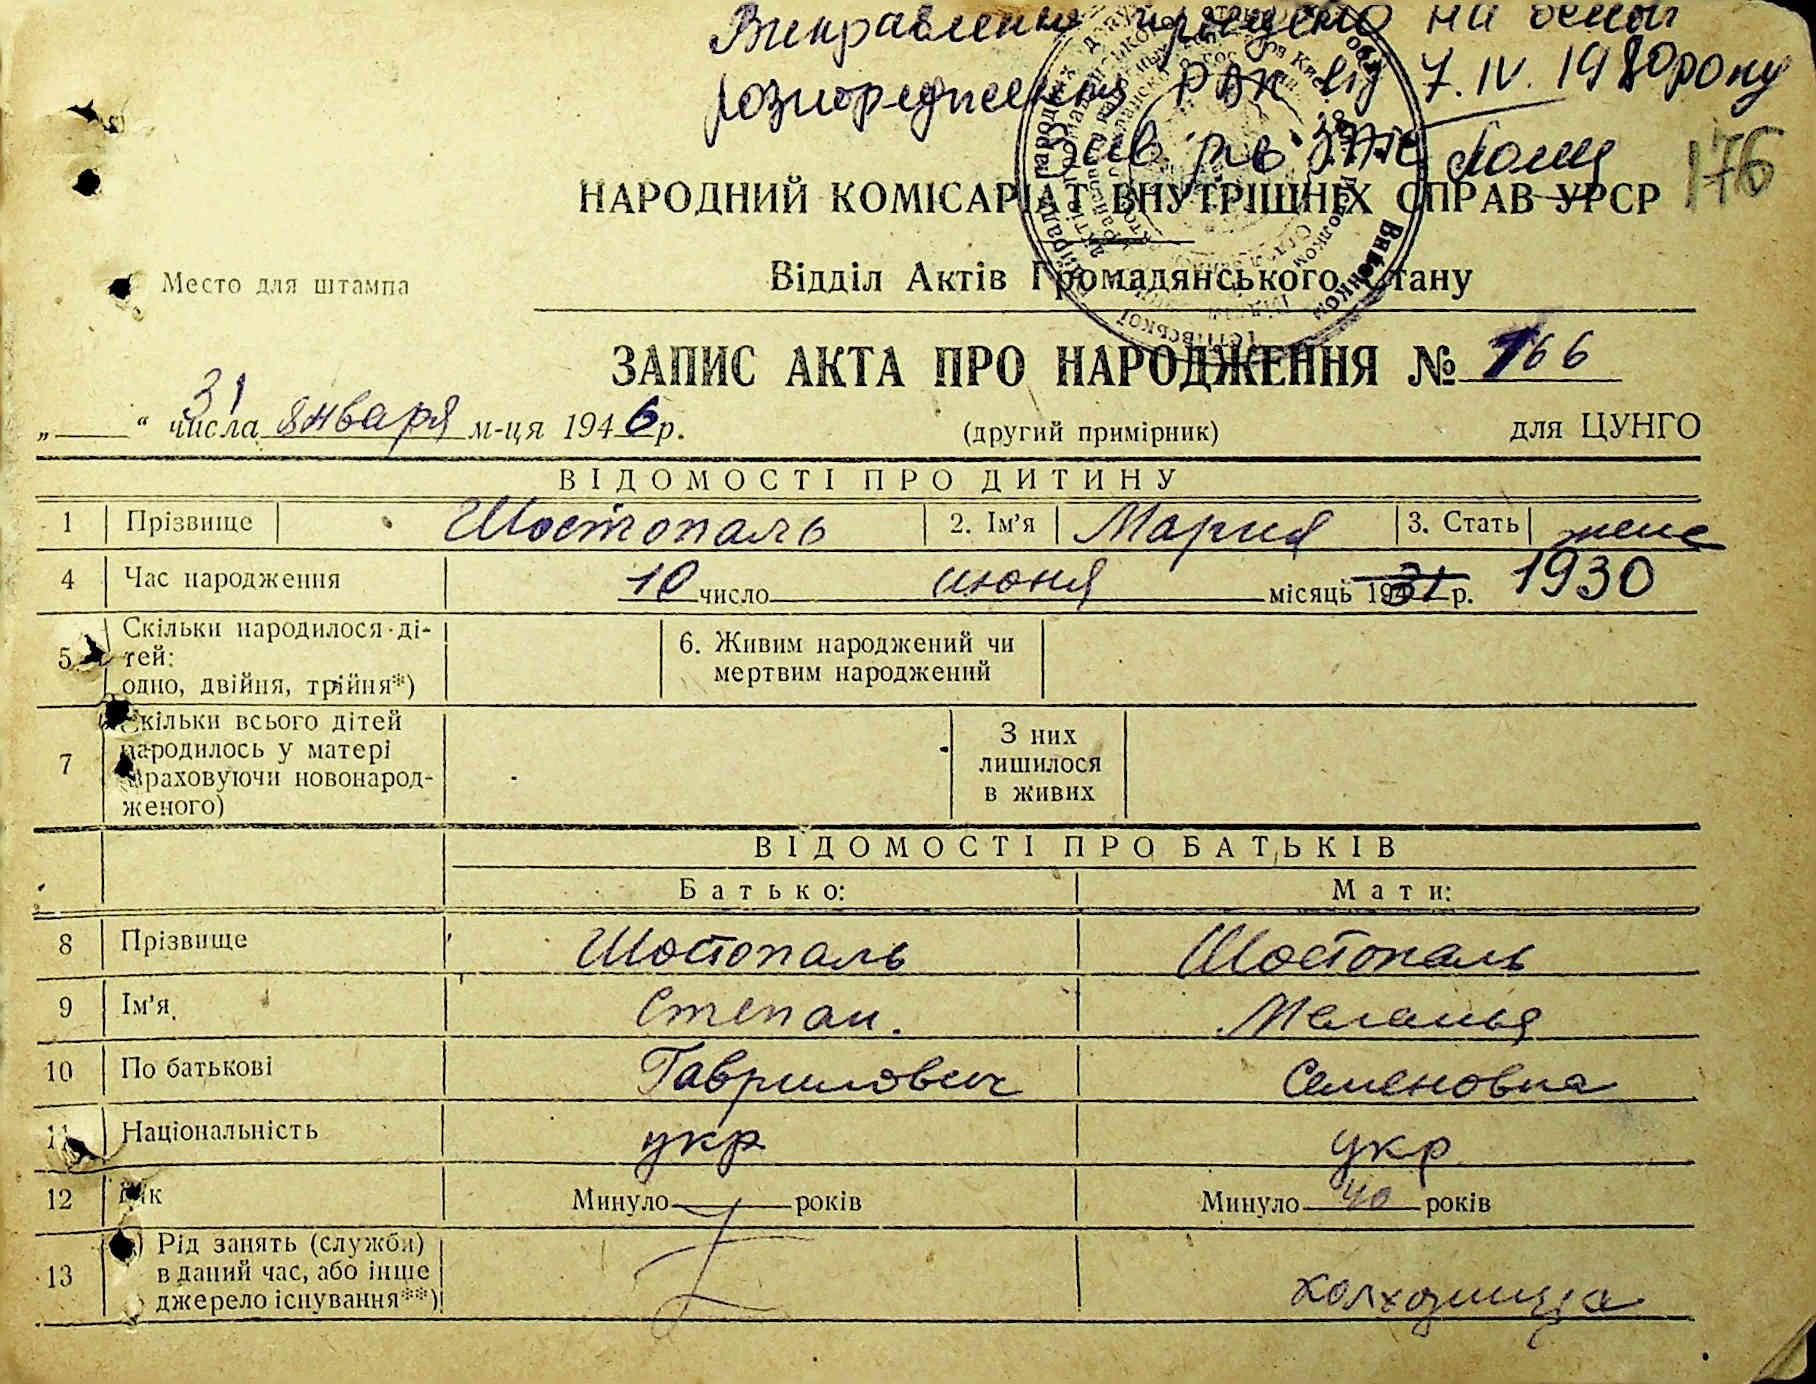 Виправлення проведено на основі
розпорядження РВК від 7.IV.1980 року
Зав рв ЗАГС
176
НАРОДНИЙ КОМІСАРІАТ ВНУТРІШНІХ СПРАВ УРСР
Место для штампа
Відділ Актів Громадянського Стану
ЗАПИС АКТА ПРО НАРОДЖЕННЯ № 166
„ 31 “ числа января м-ця 1946 р. (другий примірник) для ЦУНГО
ВІДОМОСТІ ПРО ДИТИНУ
1 Прізвище Шостопаль 2. Ім'я Мария 3. Стать женс
4 Час народження 10 число июня місяць 1931 р. 1930
5 Скільки народилося ді-
тей:
одно, двійня, трійня*)
6. Живим народжений чи
мертвим народжений
7 Скільки всього дітей
народилось у матері
(враховуючи новонарод-
женого)
З них
лишилося
в живих
ВІДОМОСТІ ПРО БАТЬКІВ
Батько: Мати:
8 Прізвище Шостопаль Шостопаль
9 Ім'я Степан. Меланья
10 По батькові Гаврилович Семеновна
11 Національність укр укр
12 Вік Минуло років Минуло 40 років
13 Рід занять (служби)
в даний час, або інше
джерело існування**)
колхозница